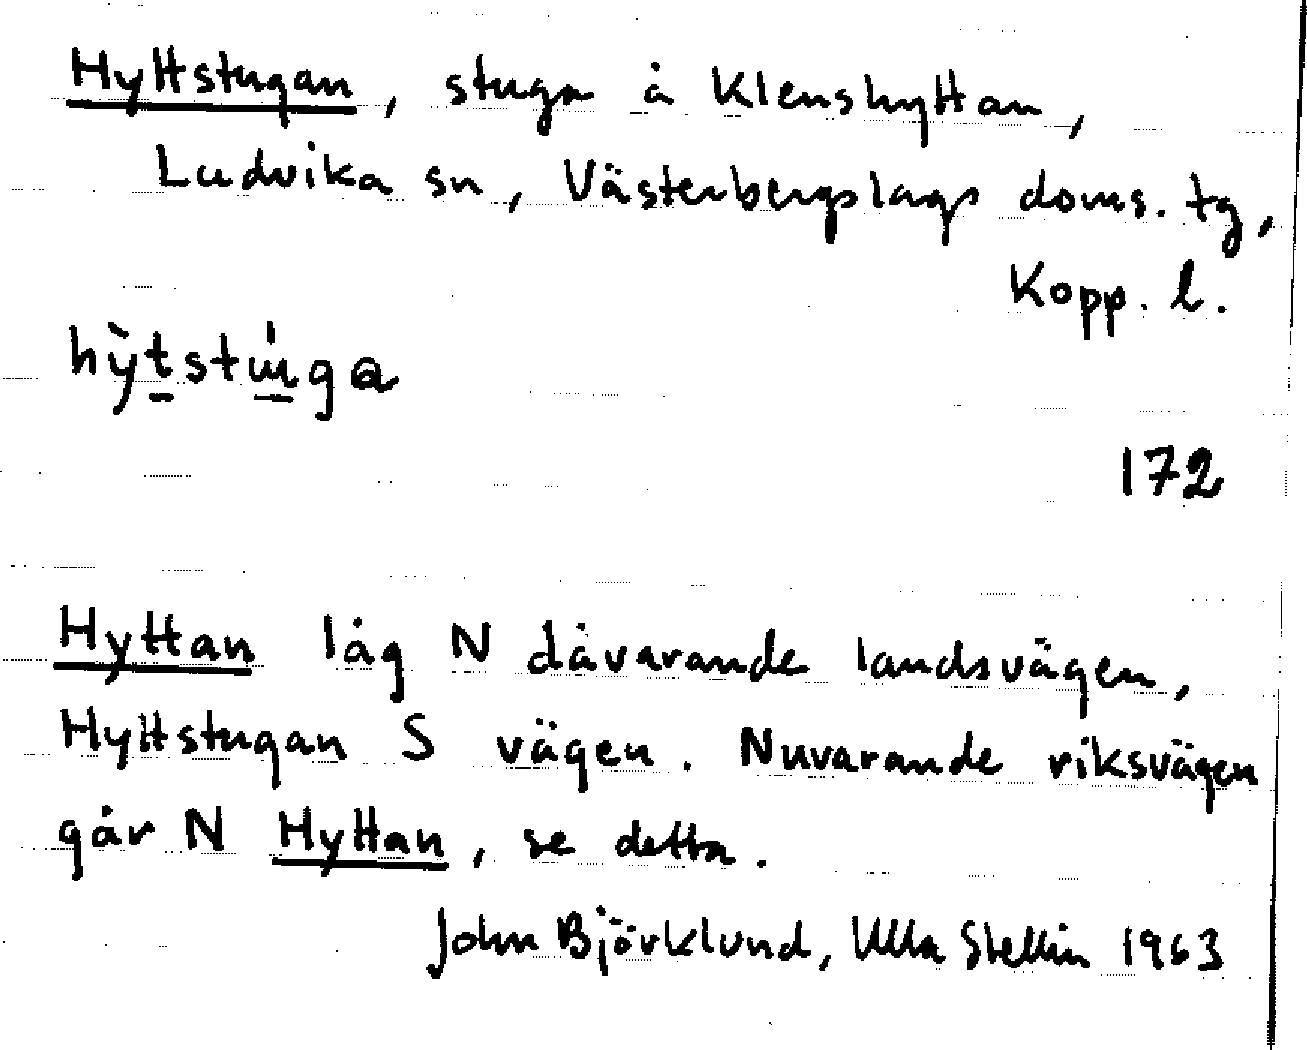 Hyttstugan, stuga å Klenshyttan,
Ludvika sn, Västerbergslags doms. tg,
Kopp. l.
hỳtstúga
172
Hyttan låg N dåvarande landsvägen,
Hyttstugan S vägen. Nuvarande riksvägen
går N Hyttan, se detta.
John Björklund, Ulla Stellin 1963